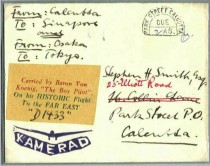 From: Calcutta
To: Singapore
and
From: Osaka
To: Tokyo.
PARK STREET CALCUTTA
DUE
Carried by Baron Von
Koenig, "The Boy Pilot"
On his HISTORIC Flight
To the FAR EAST
"D1433"
KAMERAD
Stephen H. Smith, Esq.
25 Elliott Road
Park Street P.O.
Calcutta.